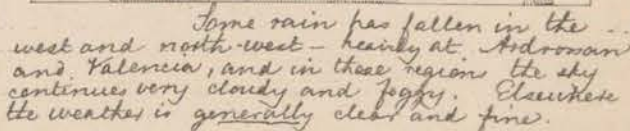 Some rain has fallen in the
west and north-west - heavily at Ardrossan
and Valencia, and in these regions the sky
continues very cloudy and foggy. Elsewhere
the weather is generally clear and fine.